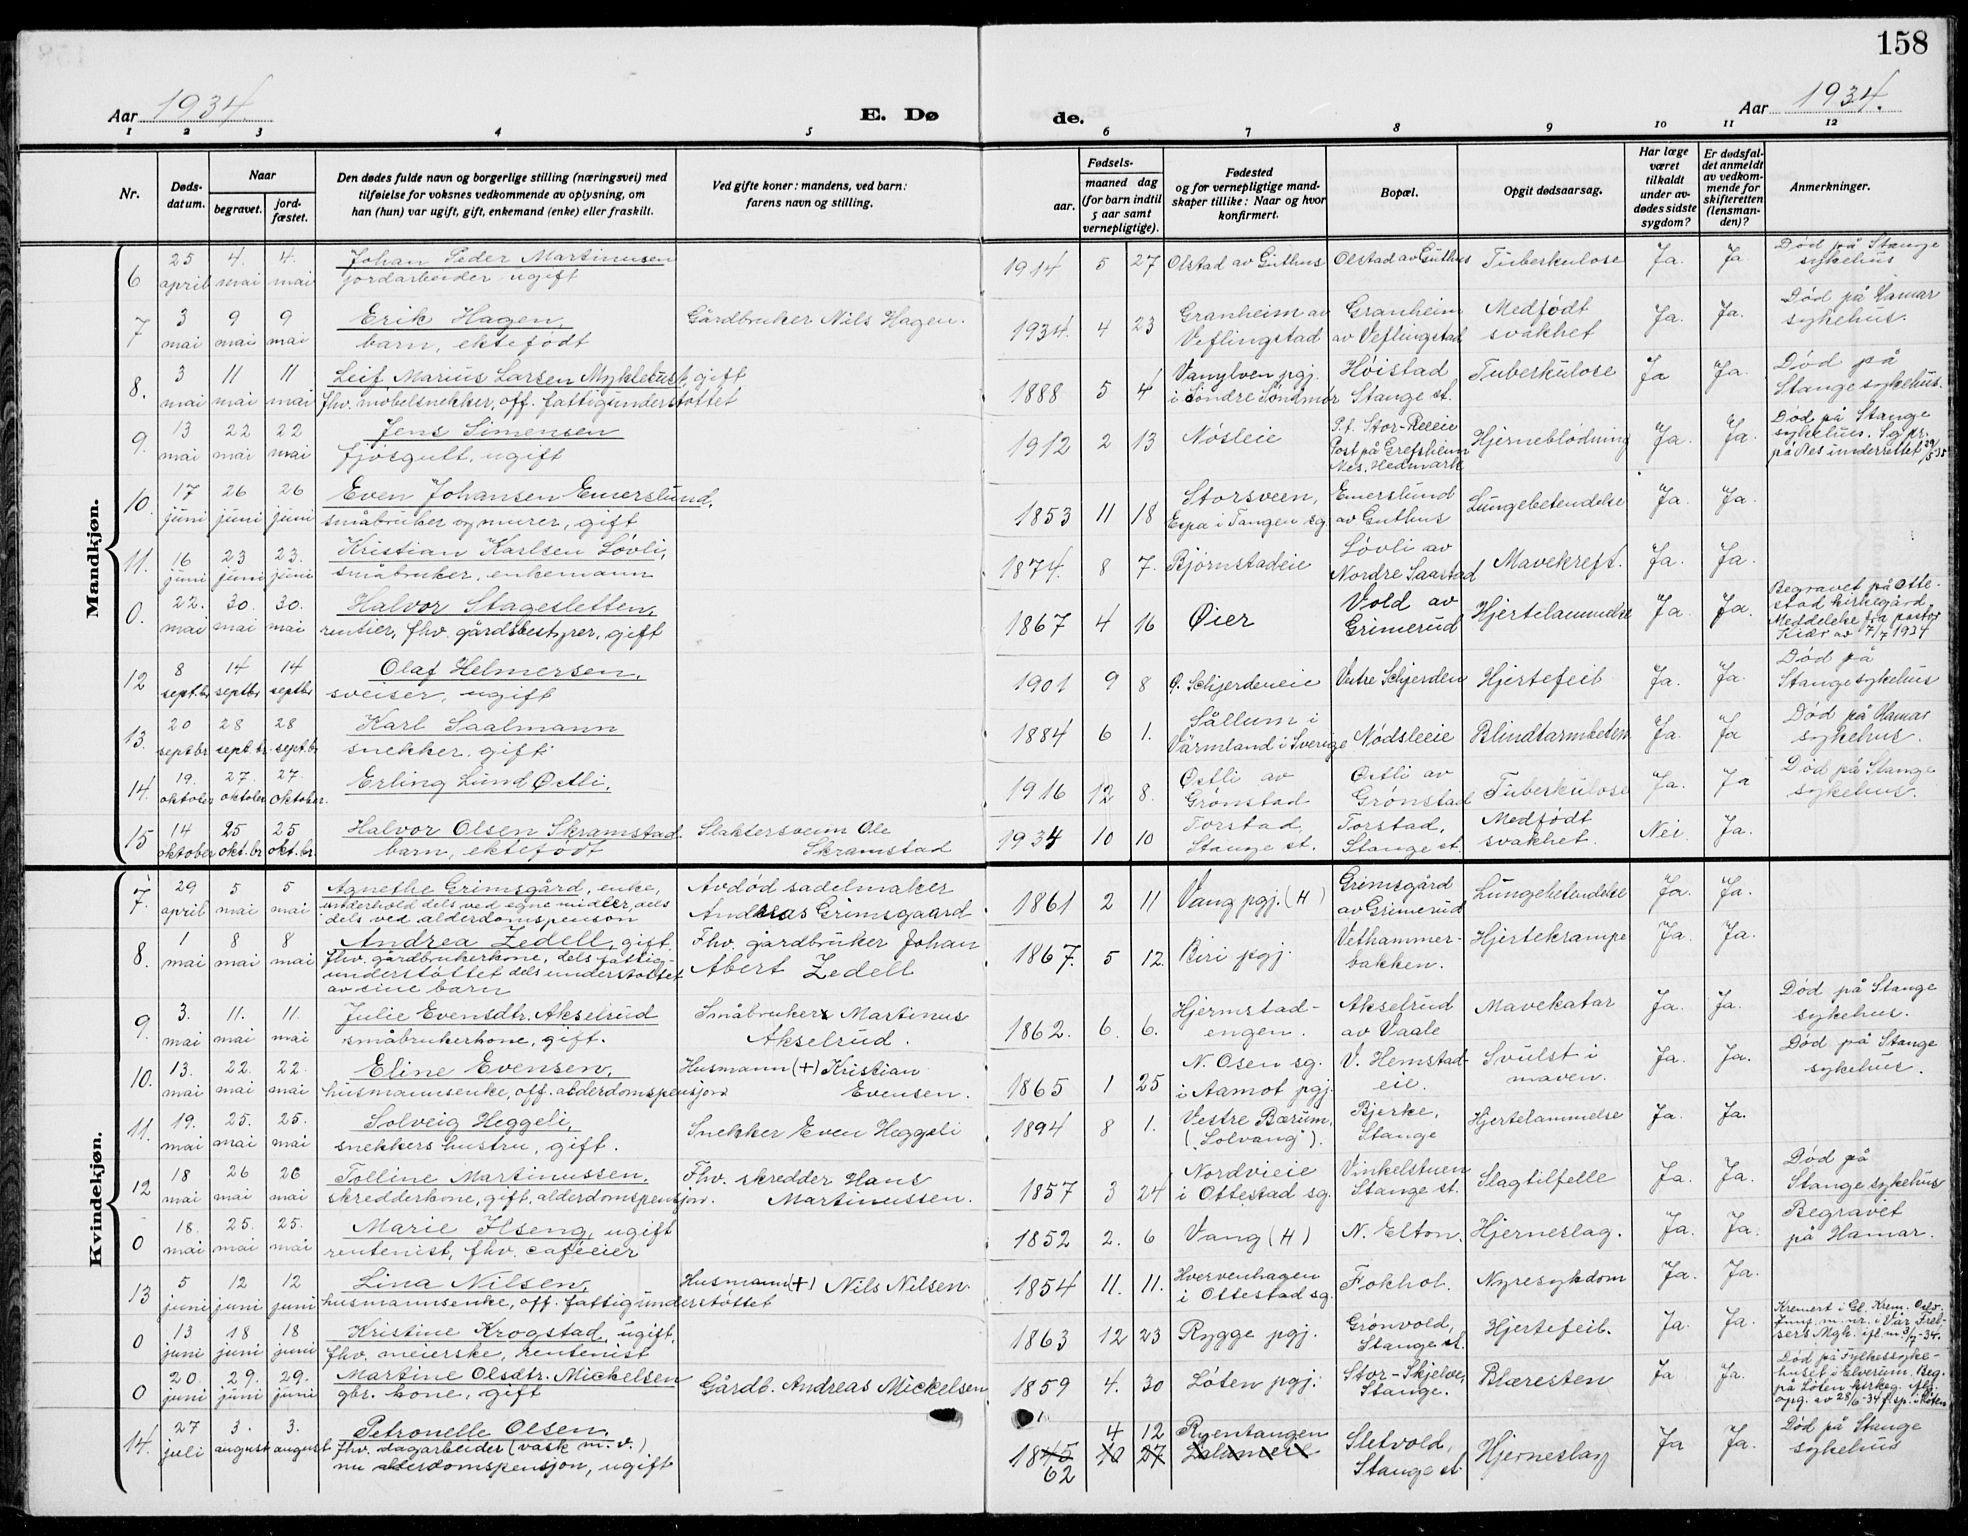 158
Aar 1934 E. Døde. Aar 1934.
1 2 3 4 5 6 7 8 9 10 11 12
Nr.
Døds-
datum.
Naar
begravet.
jord-
fæstet.
Den dødes fulde navn og borgerlige stilling (næringsvei) med
tilføielse for voksnes vedkommende av oplysning, om
han (hun) var ugift, gift, enkemand (enke) eller fraskilt.
Ved gifte koner: mandens, ved barn:
farens navn og stilling.
aar.
Fødsels-
maaned dag
(for barn indtil
5 aar samt
vernepligtige).
Fødested
og for vernepligtige mand-
skaper tillike: Naar og hvor
konfirmert.
Bopæl.
Opgit dødsaarsag.
Har læge
været
tilkaldt
under av-
dødes sidste
sygdom?
Er dødsfal-
det anmeldt
av vedkom-
mende for
skifteretten
(lensman-
den)?
Anmerkninger.
Mandkjøn.
6 25 april 4. mai 4. mai
Johan Peder Martinusen
jordarbeider ugift
1914 5 27 Olstad av Guthus Olstad av Guthus Tuberkulose Ja. Ja
Død på Stange
sykehus
7 3 mai 9 mai 9 mai
Erik Hagen,
barn, ektefødt
Gårdbruker Nils Hagen.
1934. 4 23
Granheim av
Veflingstad
Granheim
av Veflingstad
Medfødt
svakhet
Ja. Ja.
Død på Hamar
sykehus.
8. 3 mai 11 mai 11 mai
Leif Marius Larsen Myklebust, gift
fhv. møbelsnekker, off. fattigunderstøttet
1888 5 4
Vanylven pgj.
i Søndre Søndmør
Høistad
Stange st.
Tuberkulose Ja Ja.
Død på
Stange sykehus.
9. 13 mai 22 mai 22 mai
Jens Simensen
fjøsgutt, ugift
1912 2 13 Nøsleie
P.t. Stor-Ree
Post på Grefsheim
Nes, Hedmark
Hjerneblødning Ja. Ja.
Død på Stange
sykehus. Sg.pr.
på Nes underrettet
10. 17 juni 26 juni 26 juni
Even Johansen Emerslund,
småbruker og murer, gift
1853 11 18
Storsveen,
Espa i Tangen sg.
Emerslund
av Guthus
Lungebetendelse Ja. Ja.
11. 16 juni 23 juni 23. juni
Kristian Karlsen Løvli,
småbruker, enkemann
1874. 8 7. Bjørnstadeie
Løvli av
Nordre Saastad
Mavekreft. Ja. Ja.
0. 22. mai 30. mai 30. mai
Halvor Stagesletten,
rentier, fhv. gårdsbestyrer, gift
1867 4 16 Øier
Vold av
Grimerud
Hjertelammelse Ja. Ja.
Begravet på Otte-
stad kirkegård.
Meddelelse fra pastor
Kiær av 7/7 1934
12 8 septbr. 14 septbr 14 septbr
Olaf Helmersen,
sveiser, ugift
1901 9 8 Ø. Schjerdeneie Vestre Schjerden Hjertefeil Ja. Ja.
Død på
Stange sykehus
13. 20 septbr 28 septbr. 28 septbr.
Karl Saalmann
snekker. gift
1884 6 1.
Sållum i
Värmland i Sverige
Nødsleie Blindtarmbeten. Ja. Ja
Død på Hamar
sykehus.
14. 19. oktober 27. oktober 27. oktober.
Erling Lund Østli.
1916 12 8.
Østli av
Grønstad
Østli av
Grønstad
Tuberkulose Ja. Ja
Død på Stange
sykehus.
15 14 oktober 25 okt.br 25 okt.br.
Halvor Olsen Skramstad
barn, ektefødt
Slaktersvenn Ole
Skramstad
1934 10 10
Torstad,
Stange st.
Torstad,
Stange st.
Medfødt
svakhet.
Nei. Ja.
Kvindekjøn.
7. 29 april 5 mai 5 mai
Agnethe Grimsgård, enke,
underhold dels ved egne midler, dels
dels ved alderdomspensjon
Avdød sadelmaker
Andreas Grimsgaard
1861 2 11 Vang pgj. (H)
Grimsgård
av Grimerud
Lungebetendelse Ja. Ja.
8. 1 mai 8 mai 8 mai
Andrea Zedell, gift
fhv. gårdbrukerkone, dels fattig-
understøttet dels understøttet
av sine barn
Fhv. gårdbruker Johan
Abert Zedell
1867. 5 12. Biri pgj.
Vethammer-
bakken.
Hjertekrampe Ja. Ja.
9. 3. mai 11. mai 11. mai
Julie Evensdtr. Akselrud
småbrukerkone, gift.
Småbruker Martinus
Akselrud.
1862. 6. 6.
Hjermstad-
engen.
Akselrud
av Vaale
Mavekatar Ja. Ja.
Død på Stange
sykehus.
10. 13. mai 22. mai 22. mai
Eline Evensen,
husmannsenke, off. alderdomspensjon
Husmann (+) Kristian
Evensen.
1865 1 25
N. Osen sg.
i Aamot pgj.
V. Hemstad-
eie.
Svulst i
maven.
Ja. Ja.
Død på Stange
sykehus.
11. 19. mai 25. mai 25. mai
Solveig Heggeli,
snekkers hustru, gift.
Snekker Even Heggeli
1894 8 1.
Vestre Bærum,
("Solvang").
Bjerke,
Stange
Hjertelammelse Ja. Ja.
12 18 mai 26 mai 26 mai
Tolline Martinussen,
skredderkone, gift, alderdomspensjon.
Fhv. skredder Hans
Martinussen.
1857 3 24
Nordvieie
i Ottestad sg.
Vinkelstuen
Stange st.
Slagtilfelle Ja. Ja.
Død på
Stange sykehus
0 18. mai 25. mai 25. mai
Marie Ilseng, ugift
rentenist, fhv. caféeier
1852 2. 6 Vang (H) N. Elton. Hjerneslag. Ja. Ja.
Begravet
på Hamar.
13 5 juni 12 juni 12 juni
Lina Nilsen,
husmannsenke, off. fattigunderstøttet
Husmann (+) Nils Nilsen
1854 11. 11.
Hvervenhagen
i Ottestad sg.
Fokhol. Nyresykdom Ja. Ja.
0 13 juni 18 juni 18 juni
Kristine Krogstad, ugift,
fhv. meierske, rentenist
1863 12 23 Rygge pgj.
Grønvold,
Stange st.
Hjertefeil. Ja. Ja.
Kremert i Gl. Krem. Oslo.
Jung. m. nr. i Vår Frel-
sers
0 20. juni 29. juni 29. juni
Martine Olsdtr. Mickelsen
gbr. kone, gift
Gårdb. Andreas Mickelsen
1859 4. 30 Løten pgj.
Stor-Skjelve,
Stange.
Blæresten Ja Ja.
Død på Fylkessyke-
huset i Elverum. Beg.
på Løten kirkeg. iflg.
opg. av 28/6-34 f. sp. Løten
14. 27 juli 3. august 3. august
Petronelle Olsen,
fhv. dagarbeider (vask m. v.)
nu alderdomspensjon, ugift
1845 62 4 10 12 27
Ryentangen
Sletvold,
Stange st.
Hjerneslag Ja Ja.
Død på Stange
sykehus